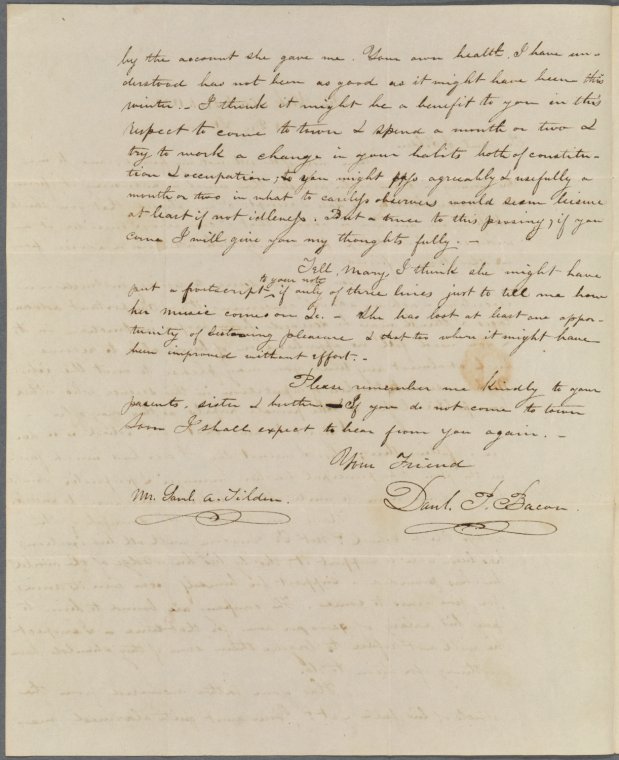 by the account she gave me. Your own health, I have un-
derstood has not been as good as it might have been this
winter. - I think it might be a benefit to you in this
respect to come to town & spend a month or two &
try to work a change in your habits both of constitu-
tion & occupation; to you might pass agreeably & usefully a
month or two in what to careless observers would seem leisure
at least if not idleness. But a truce to this prosing; if you
come I will give you my thoughts fully. -
Tell, Mary, I think she might have
to your note
put a postscript if only of three lines just to tell me how
her music comes on &c. - She has lost at least one oppor-
tunity of bestowing pleasure & that too where it might have
been improved without effort. -
Please remember me kindly to your
parents, sister & brother. - If you do not come to town
soon I shall expect to hear from you again. -
Your Friend
Mr. Saml. A. Tilden.
Danl. P. Bacon.